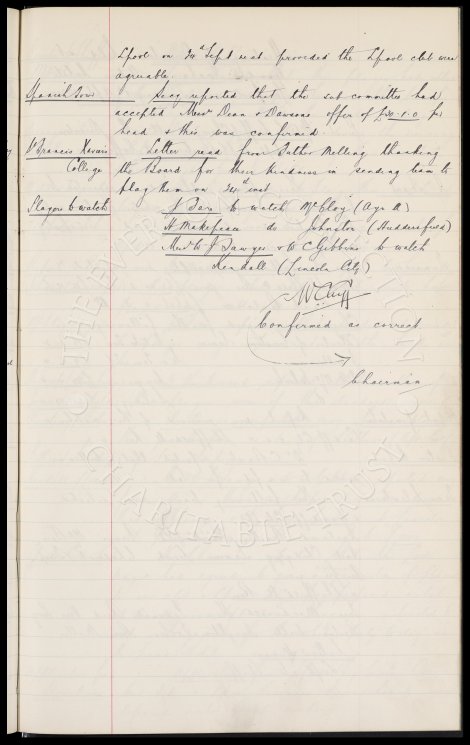 Lpool on 24th Sept next provided the Lpool club were
agreeable.
Spanish Tour Secy reported that the sub committee had
accepted Messrs Dean & Dawsons offer of £30-1-0 per
head & this was confirmed.
St Francis Xavier's Letter read from Father Melling thanking
College the Board for their kindness in sending team to
play them on 24th inst
Players to watch to watch McCloy (Ayr U)
H Makepeace do Johnston (Huddersfield)
Messrs W J Sawyer & W C Gibbins to watch
Kendall (Lincoln City)
W C Cuff
Confirmed as correct
Chairman
THE EVERTON COLLECTION
CHARITABLE TRUST